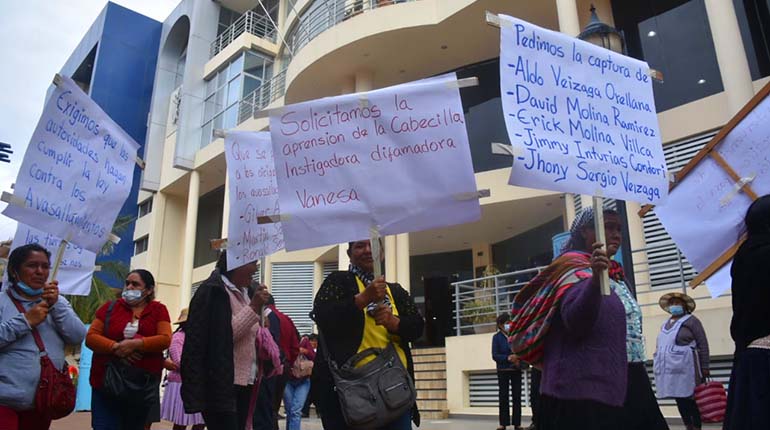 Exigimos que las
autoridades hagan
cumplir la ley
contra los
Avasallamientos
Que se
a los
los avasall
- Martin
- Ronal
Solicitamos la
aprension de la Cabecilla
Instigadora difamadora
Vanesa
Pedimos la captura de
- Aldo Veizaga Orellana
- David Molina Ramirez
- Erick Molina Villca
- Jimmy Inturias Contori
- Jhony Sergio Veizaga